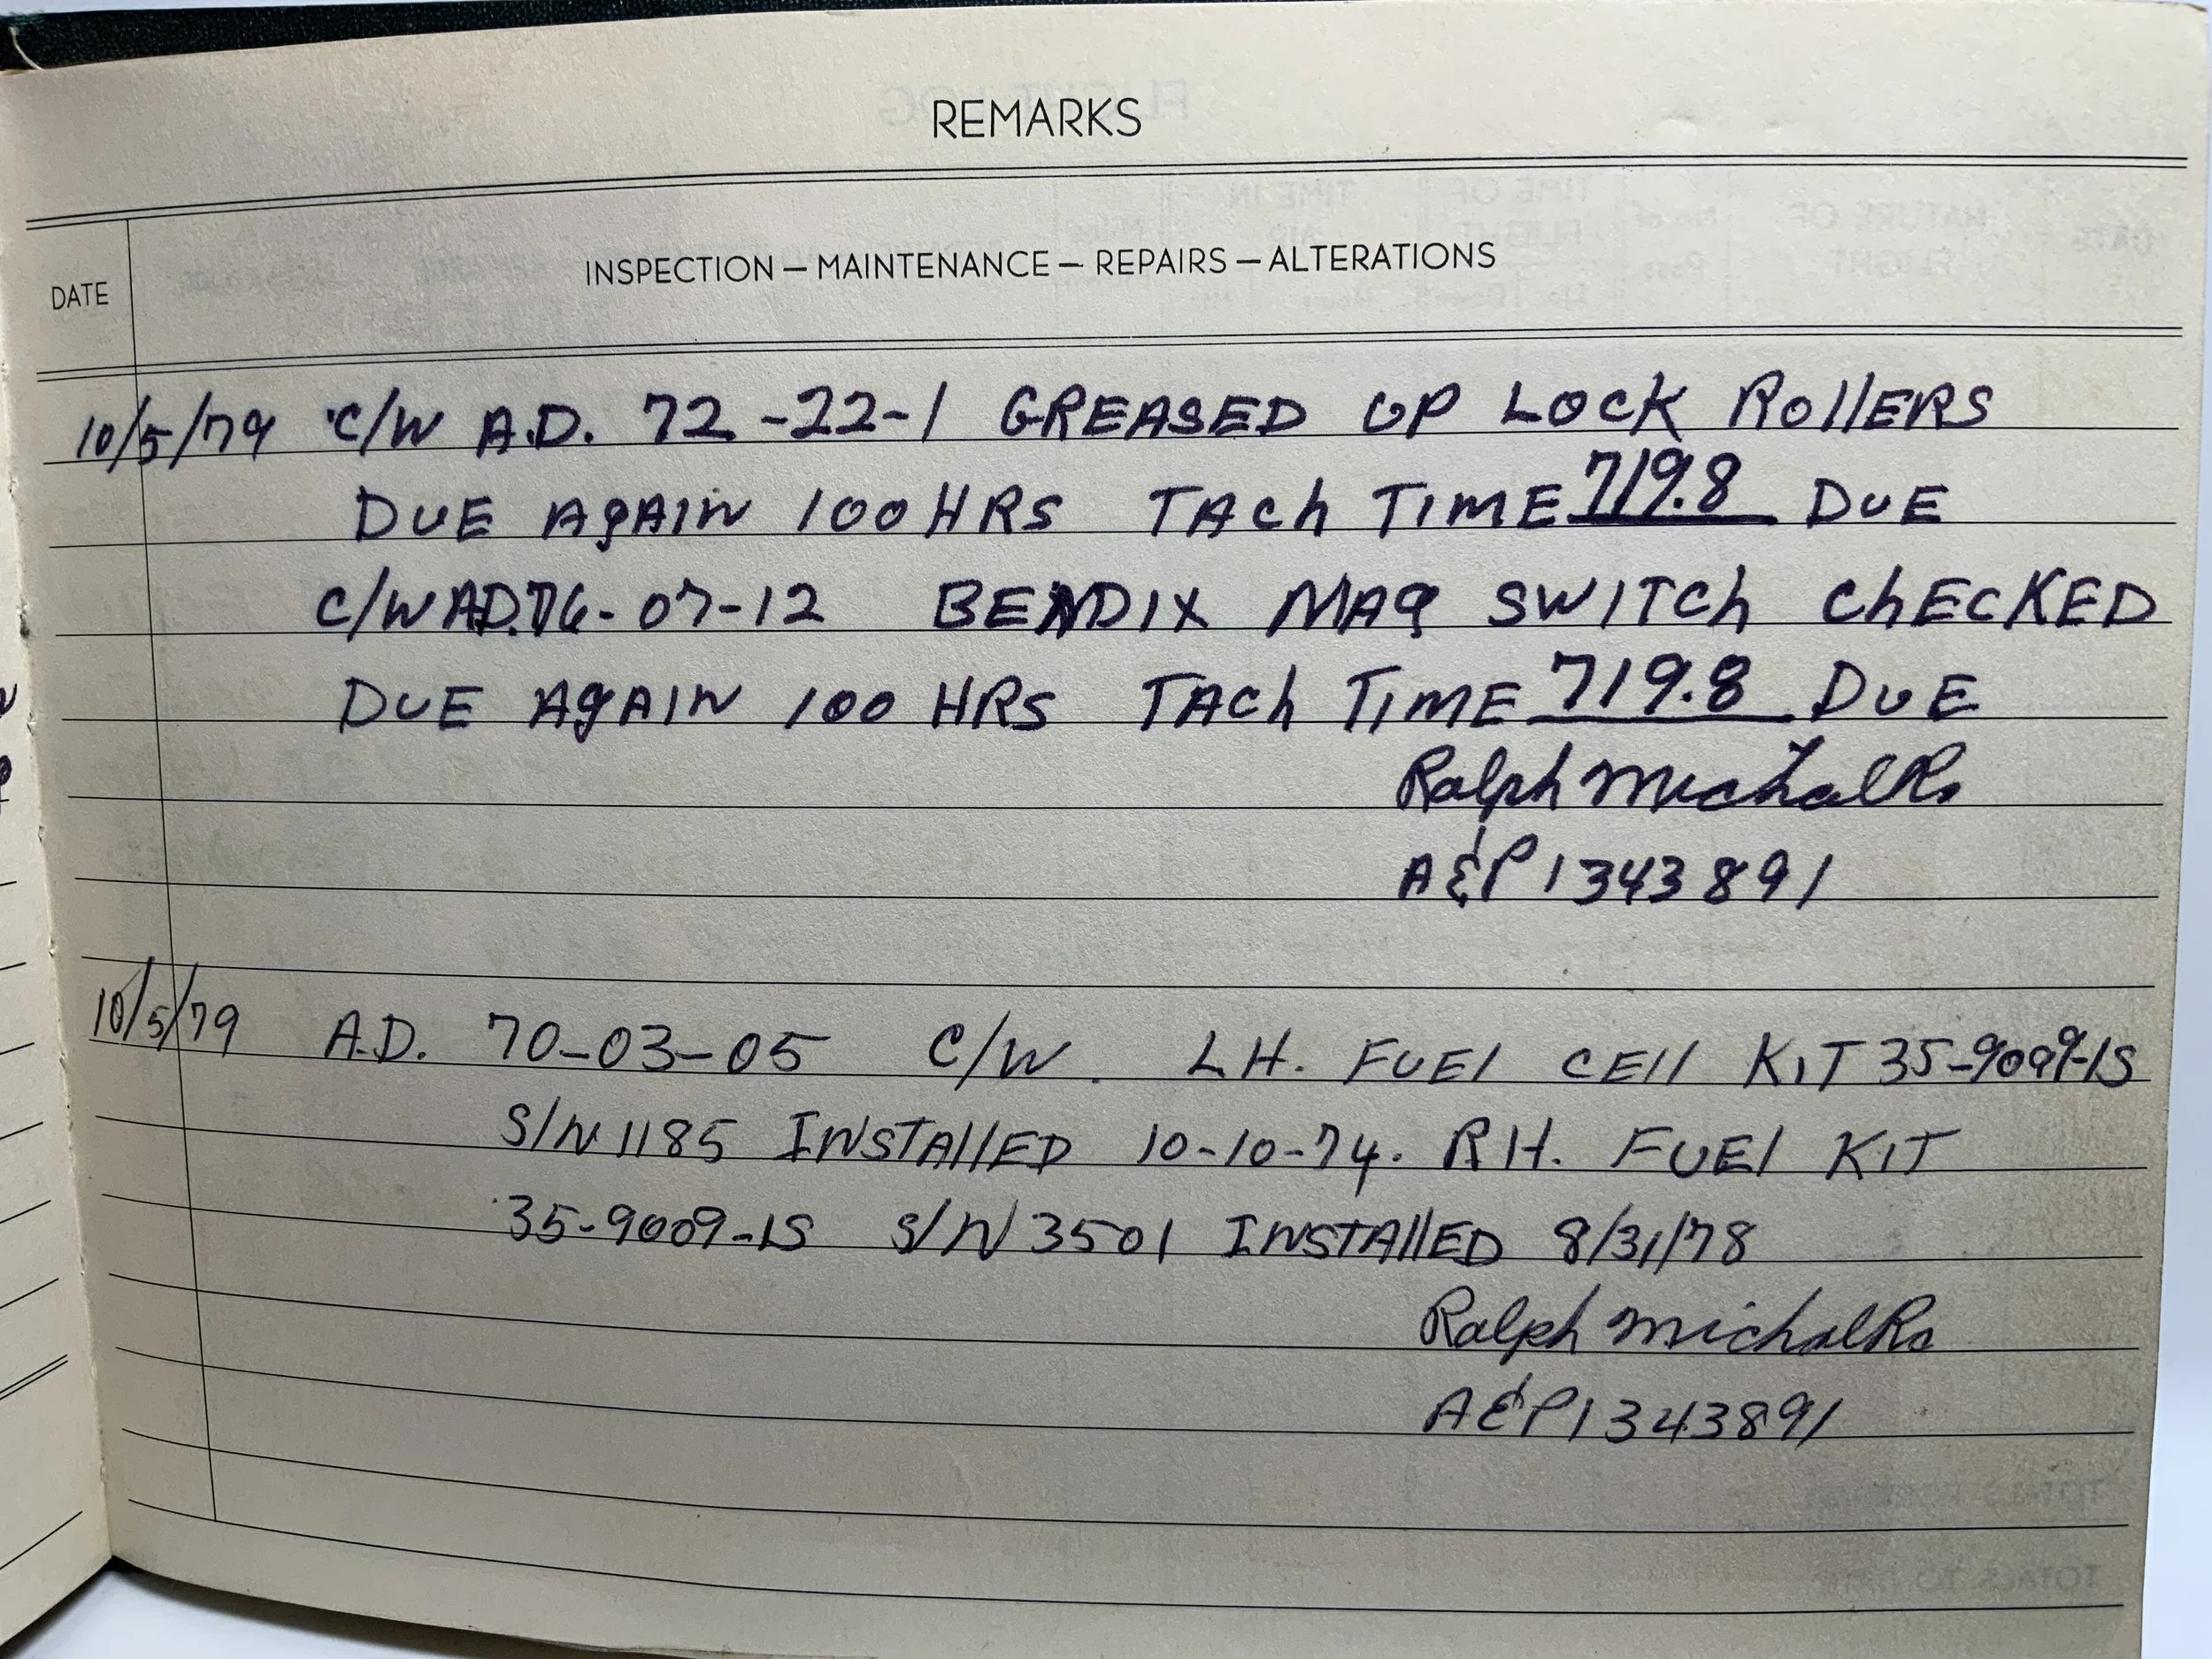 REMARKS
DATE INSPECTION — MAINTENANCE — REPAIRS — ALTERATIONS
10/5/79 C/W A.D. 72-22-1 GREASED UP LOCK ROllERS
DUE AgAIN 100 HRS TACh TIME 719.8 DUE
C/W A.D. 76-07-12 BENDIX MAg SWITCh ChECKED
DUE AgAIN 100 HRS TACh TIME 719.8 DUE
Ralph Michalko
A&P 1343891
10/5/79 A.D. 70-03-05 C/W. LH. FUEl CEll KIT 35-9009-1S
S/N 1185 INSTAllED 10-10-74. RH. FUEl KIT
35-9009-1S S/N 3501 INSTAllED 8/31/78
Ralph Michalko
A&P 1343891